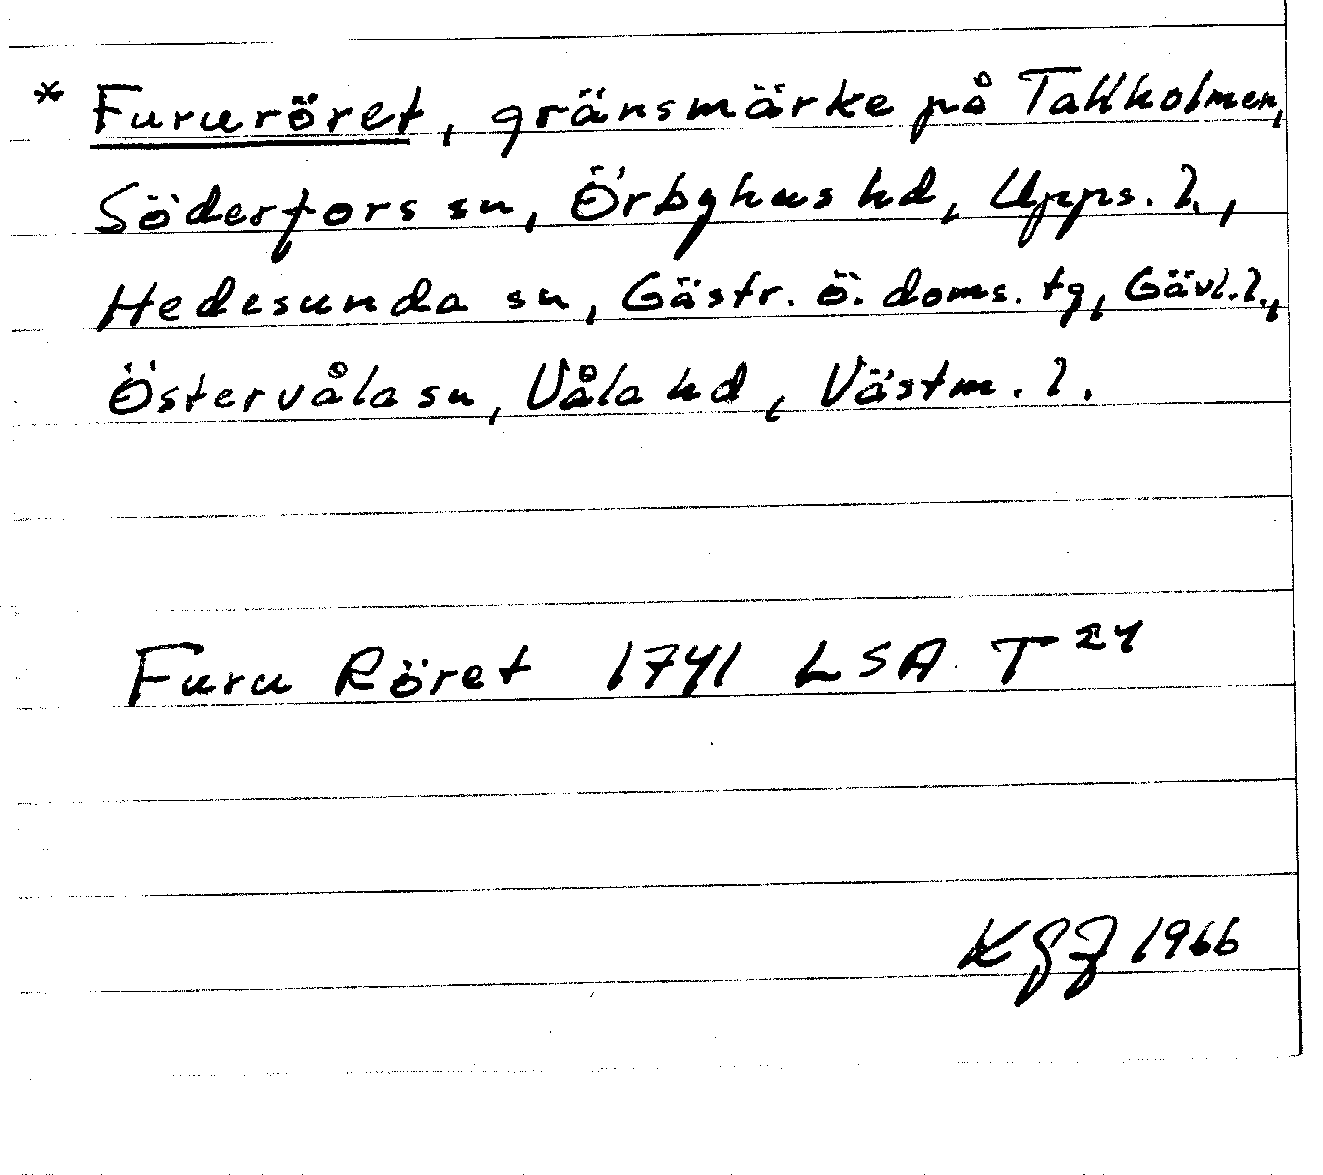 * Fururöret, gränsmärke på Tallholmen,
Söderfors sn, Örbyhus hd, Upps. l.,
Hedesunda sn, Gästr. ö. doms. tg, Gävl. l.,
Östervåla sn, Våla hd, Västm. l.
Furu Röret 1741 LSA T 24
1966